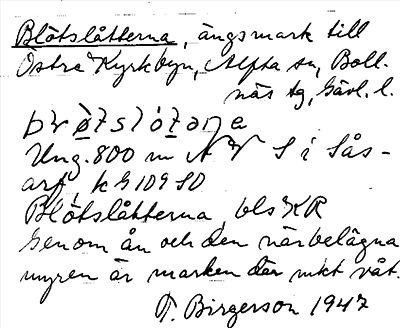 Blötslåtterna, ängsmark till
Östra Kyrkbyn, Alfta sn, Boll-
näs tg, Gävl. l.
Ung. 800 m N V S i Sås-
arf, k G 109 SO
Blötslåtterna, bls KR
Genom ån och den närbelägna
myren är marken där mkt våt.
T. Birgerson 1947